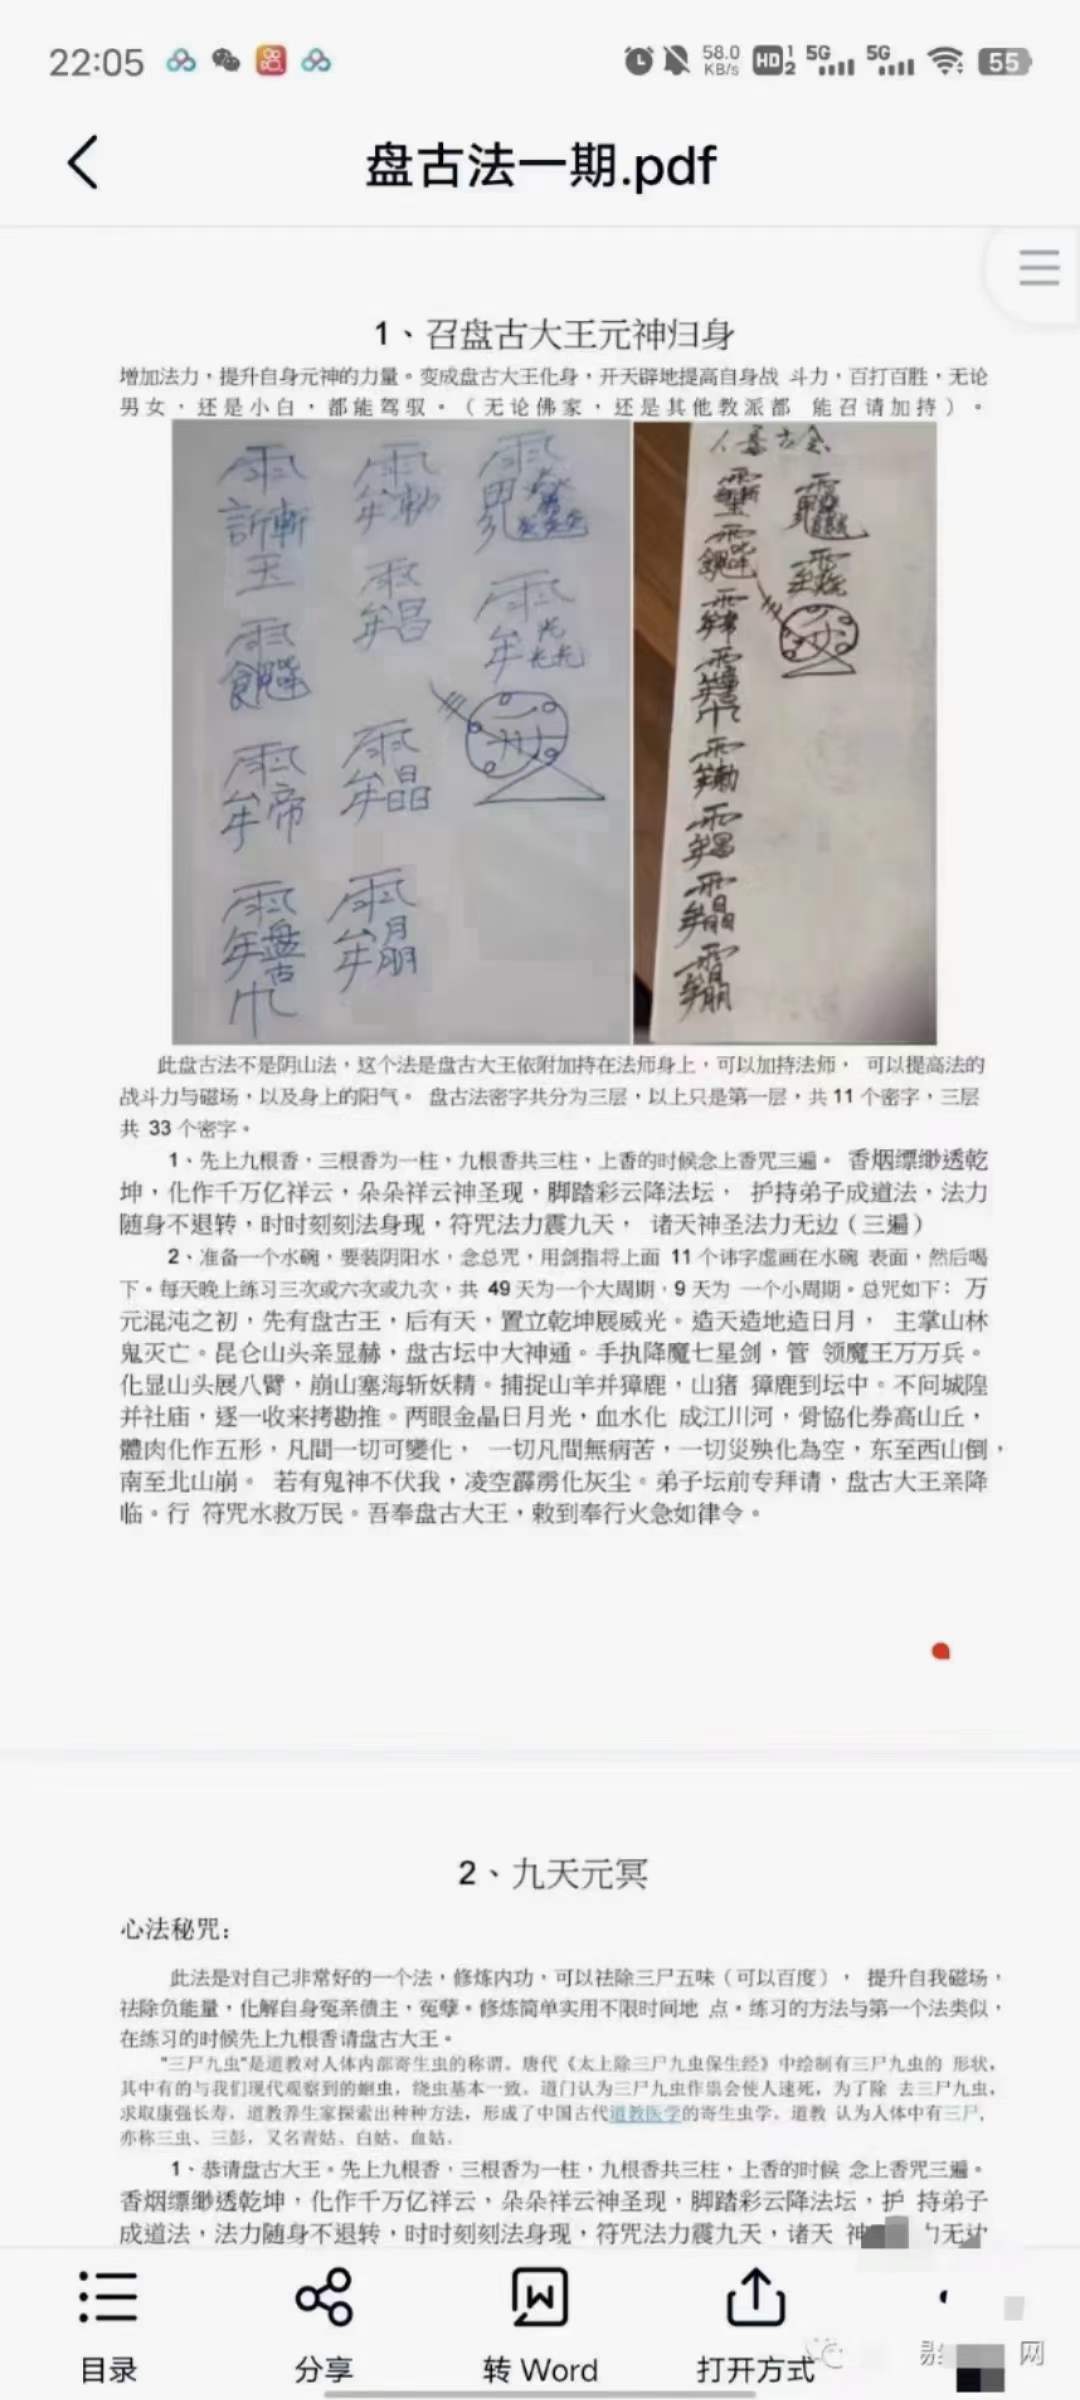 22:05
58.0
KB/s
HD 1
2
5G
5G
55
盘古法一期.pdf
1、召盘古大王元神归身
增加法力，提升自身元神的力量。变成盘古大王化身，开天辟地提高自身战 斗力，百打百胜，无论
男女，还是小白，都能驾驭。（无论佛家，还是其他教派都 能召请加持）。
此盘古法不是阴山法，这个法是盘古大王依附加持在法师身上，可以加持法师， 可以提高法的
战斗力与磁场，以及身上的阳气。 盘古法密字共分为三层，以上只是第一层，共 11 个密字，三层
共 33 个密字。
1、先上九根香，三根香为一柱，九根香共三柱，上香的时候念上香咒三遍。 香烟缥缈透乾
坤，化作千万亿祥云，朵朵祥云神圣现，脚踏彩云降法坛， 护持弟子成道法，法力
随身不退转，时时刻刻法身现，符咒法力震九天， 诸天神圣法力无边（三遍）
2、准备一个水碗，要装阴阳水，念总咒，用剑指将上面 11 个讳字虚画在水碗 表面，然后喝
下。每天晚上练习三次或六次或九次，共 49 天为一个大周期，9 天为 一个小周期。总咒如下：万
元混沌之初，先有盘古王，后有天，置立乾坤展威光。造天造地造日月， 主掌山林
鬼灭亡。昆仑山头亲显赫，盘古坛中大神通。手执降魔七星剑，管 领魔王万万兵。
化显山头展八臂，崩山塞海斩妖精。捕捉山羊并獐鹿，山猪 獐鹿到坛中。不问城隍
并社庙，逐一收来拷勘推。两眼金晶日月光，血水化 成江川河，骨協化券高山丘，
體肉化作五形，凡間一切可變化， 一切凡間無病苦，一切災殃化為空，东至西山倒，
南至北山崩。 若有鬼神不伏我，凌空霹雳化灰尘。弟子坛前专拜请，盘古大王亲降
临。行 符咒水救万民。吾奉盘古大王，敕到奉行火急如律令。
2、九天元冥
心法秘咒：
此法是对自己非常好的一个法，修炼内功，可以祛除三尸五味（可以百度）， 提升自我磁场，
祛除负能量，化解自身冤亲债主，冤孽。修炼简单实用不限时间地 点。练习的方法与第一个法类似，
在练习的时候先上九根香请盘古大王。
"三尸九虫"是道教对人体内部寄生虫的称谓。唐代《太上除三尸九虫保生经》中绘制有三尸九虫的 形状，
其中有的与我们现代观察到的蛔虫，绕虫基本一致。道门认为三尸九虫作祟会使人速死，为了除 去三尸九虫，
求取康强长寿，道教养生家探索出种种方法，形成了中国古代道教医学的寄生虫学。道教 认为人体中有三尸，
亦称三虫、三彭，又名青姑、白姑、血姑。
1、恭请盘古大王。先上九根香，三根香为一柱，九根香共三柱，上香的时候 念上香咒三遍。
香烟缥缈透乾坤，化作千万亿祥云，朵朵祥云神圣现，脚踏彩云降法坛，护 持弟子
成道法，法力随身不退转，时时刻刻法身现，符咒法力震九天，诸天 神 力无边
目录
分享
转 Word
打开方式
网